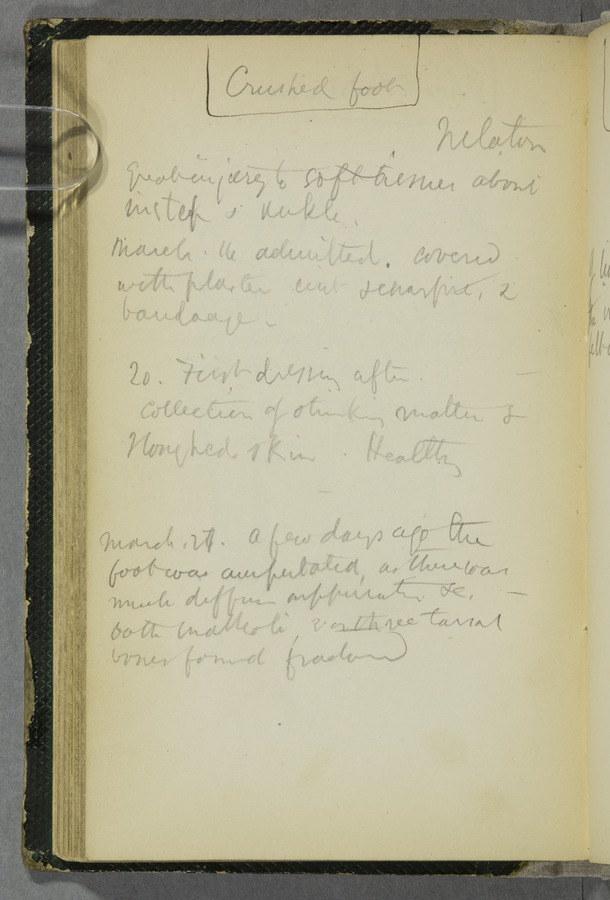 Crushed foot
Nelaton
Great injury to soft tissues about
instep & ankle.
March. 16 admitted. covered
with plaster and &
bandage -
20. First dressing after.
Collection of stinking matter &
sloughed skin. Healthy
March. 27. a few days ago the
foot was amputated, as there was
much diffuse suppuration &c. -
both malleoli, 2 or three tarsal
bones found fractured